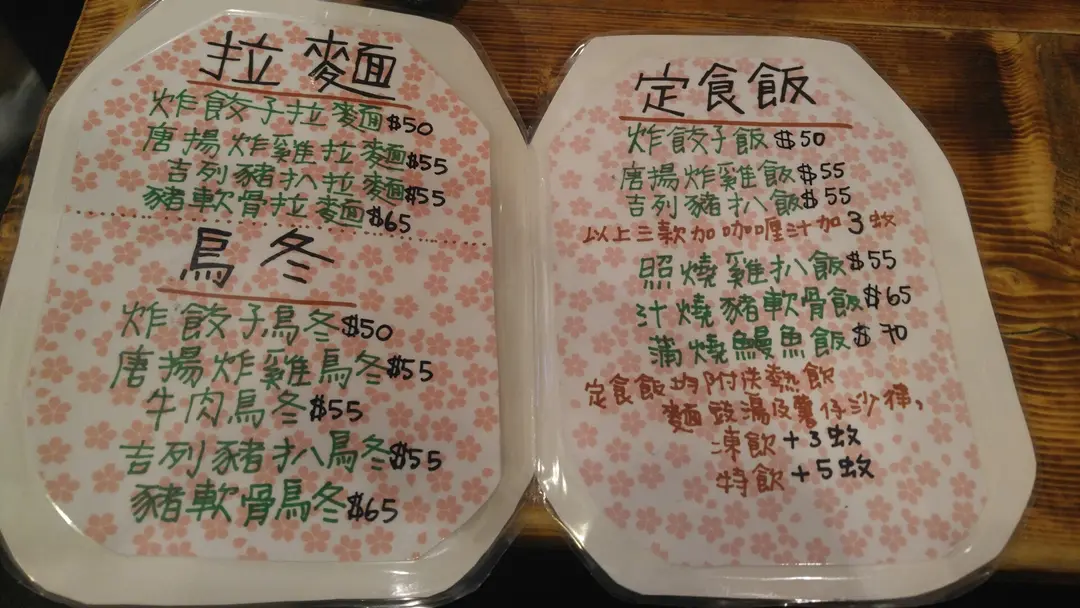 拉麵
炸餃子拉麵$50
唐揚炸雞拉麵$55
吉列豬扒拉麵$55
豬軟骨拉麵$65
烏冬
炸餃子烏冬$50
唐揚炸雞烏冬$55
牛肉烏冬$55
吉列豬扒烏冬$55
豬軟骨烏冬$65
定食飯
炸餃子飯$50
唐揚炸雞飯$55
吉列豬扒飯$55
以上三款加咖喱汁加3蚊
照燒雞扒飯$55
汁燒豬軟骨飯$65
蒲燒鰻魚飯$70
定食飯均附送熱飲
麵豉湯及薯仔沙律,
凍飲+3蚊
特飲+5蚊